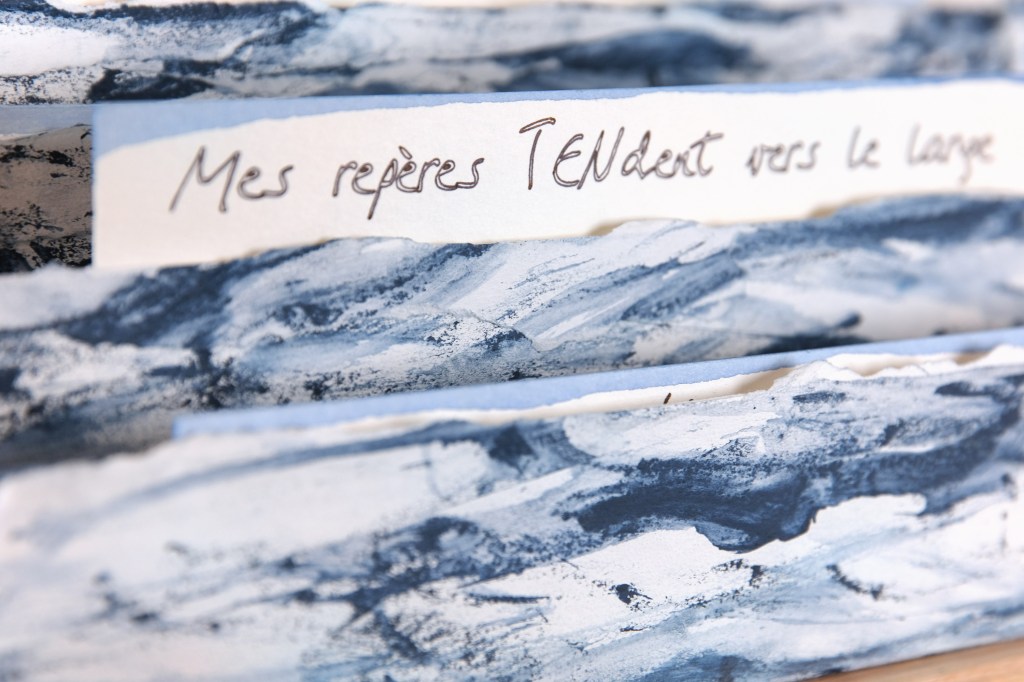 Mes repères TENdent vers le large